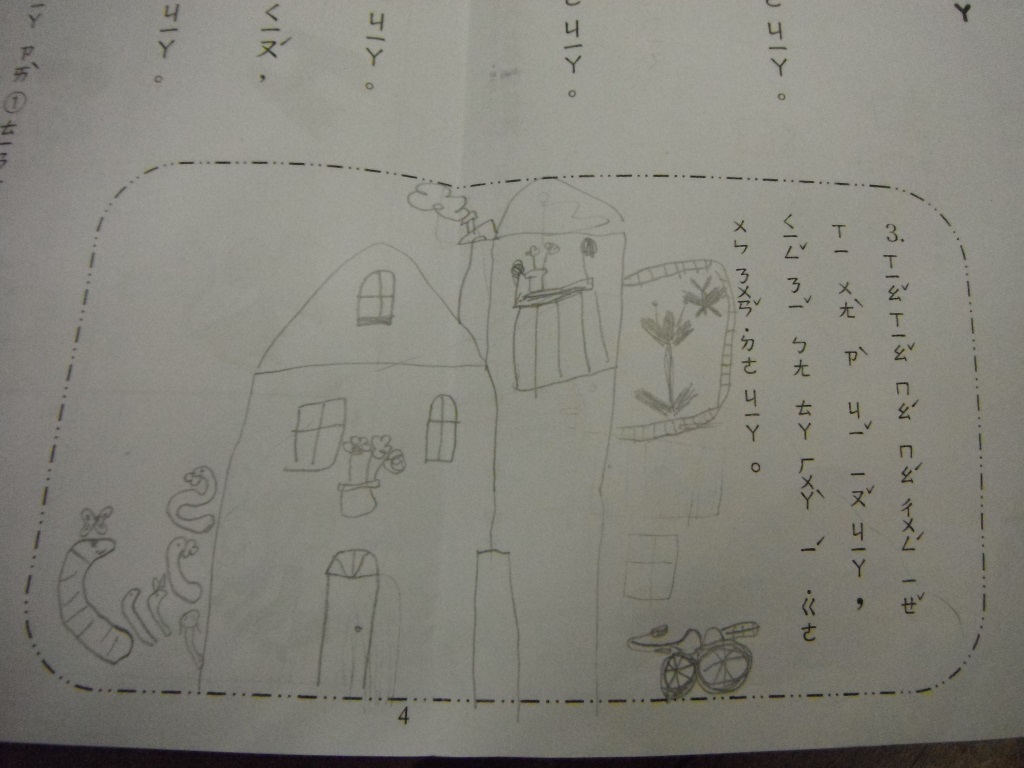 ㄚ
ㄐㄧㄚ。
ㄐㄧㄚ。
ㄐㄧㄚ。
ㄑㄧㄡˊ，
ㄐㄧㄚ。
①
3. ㄒㄧㄠˇ ㄒㄧㄠˇ ㄇㄠˊ ㄇㄠˊ ㄔㄨㄥˊ ㄧㄝˇ
ㄒㄧ ㄨㄤˋ ㄗˋ ㄐㄧˇ ㄧㄡˇ ㄐㄧㄚ，
ㄑㄧㄥˇ ㄋㄧˇ ㄅㄤ ㄊㄚ ㄏㄨㄚˋ ㄧˊ ˙ㄍㄜ
ㄨㄣ ㄋㄨㄢˇ ˙ㄉㄜ ㄐㄧㄚ。
4